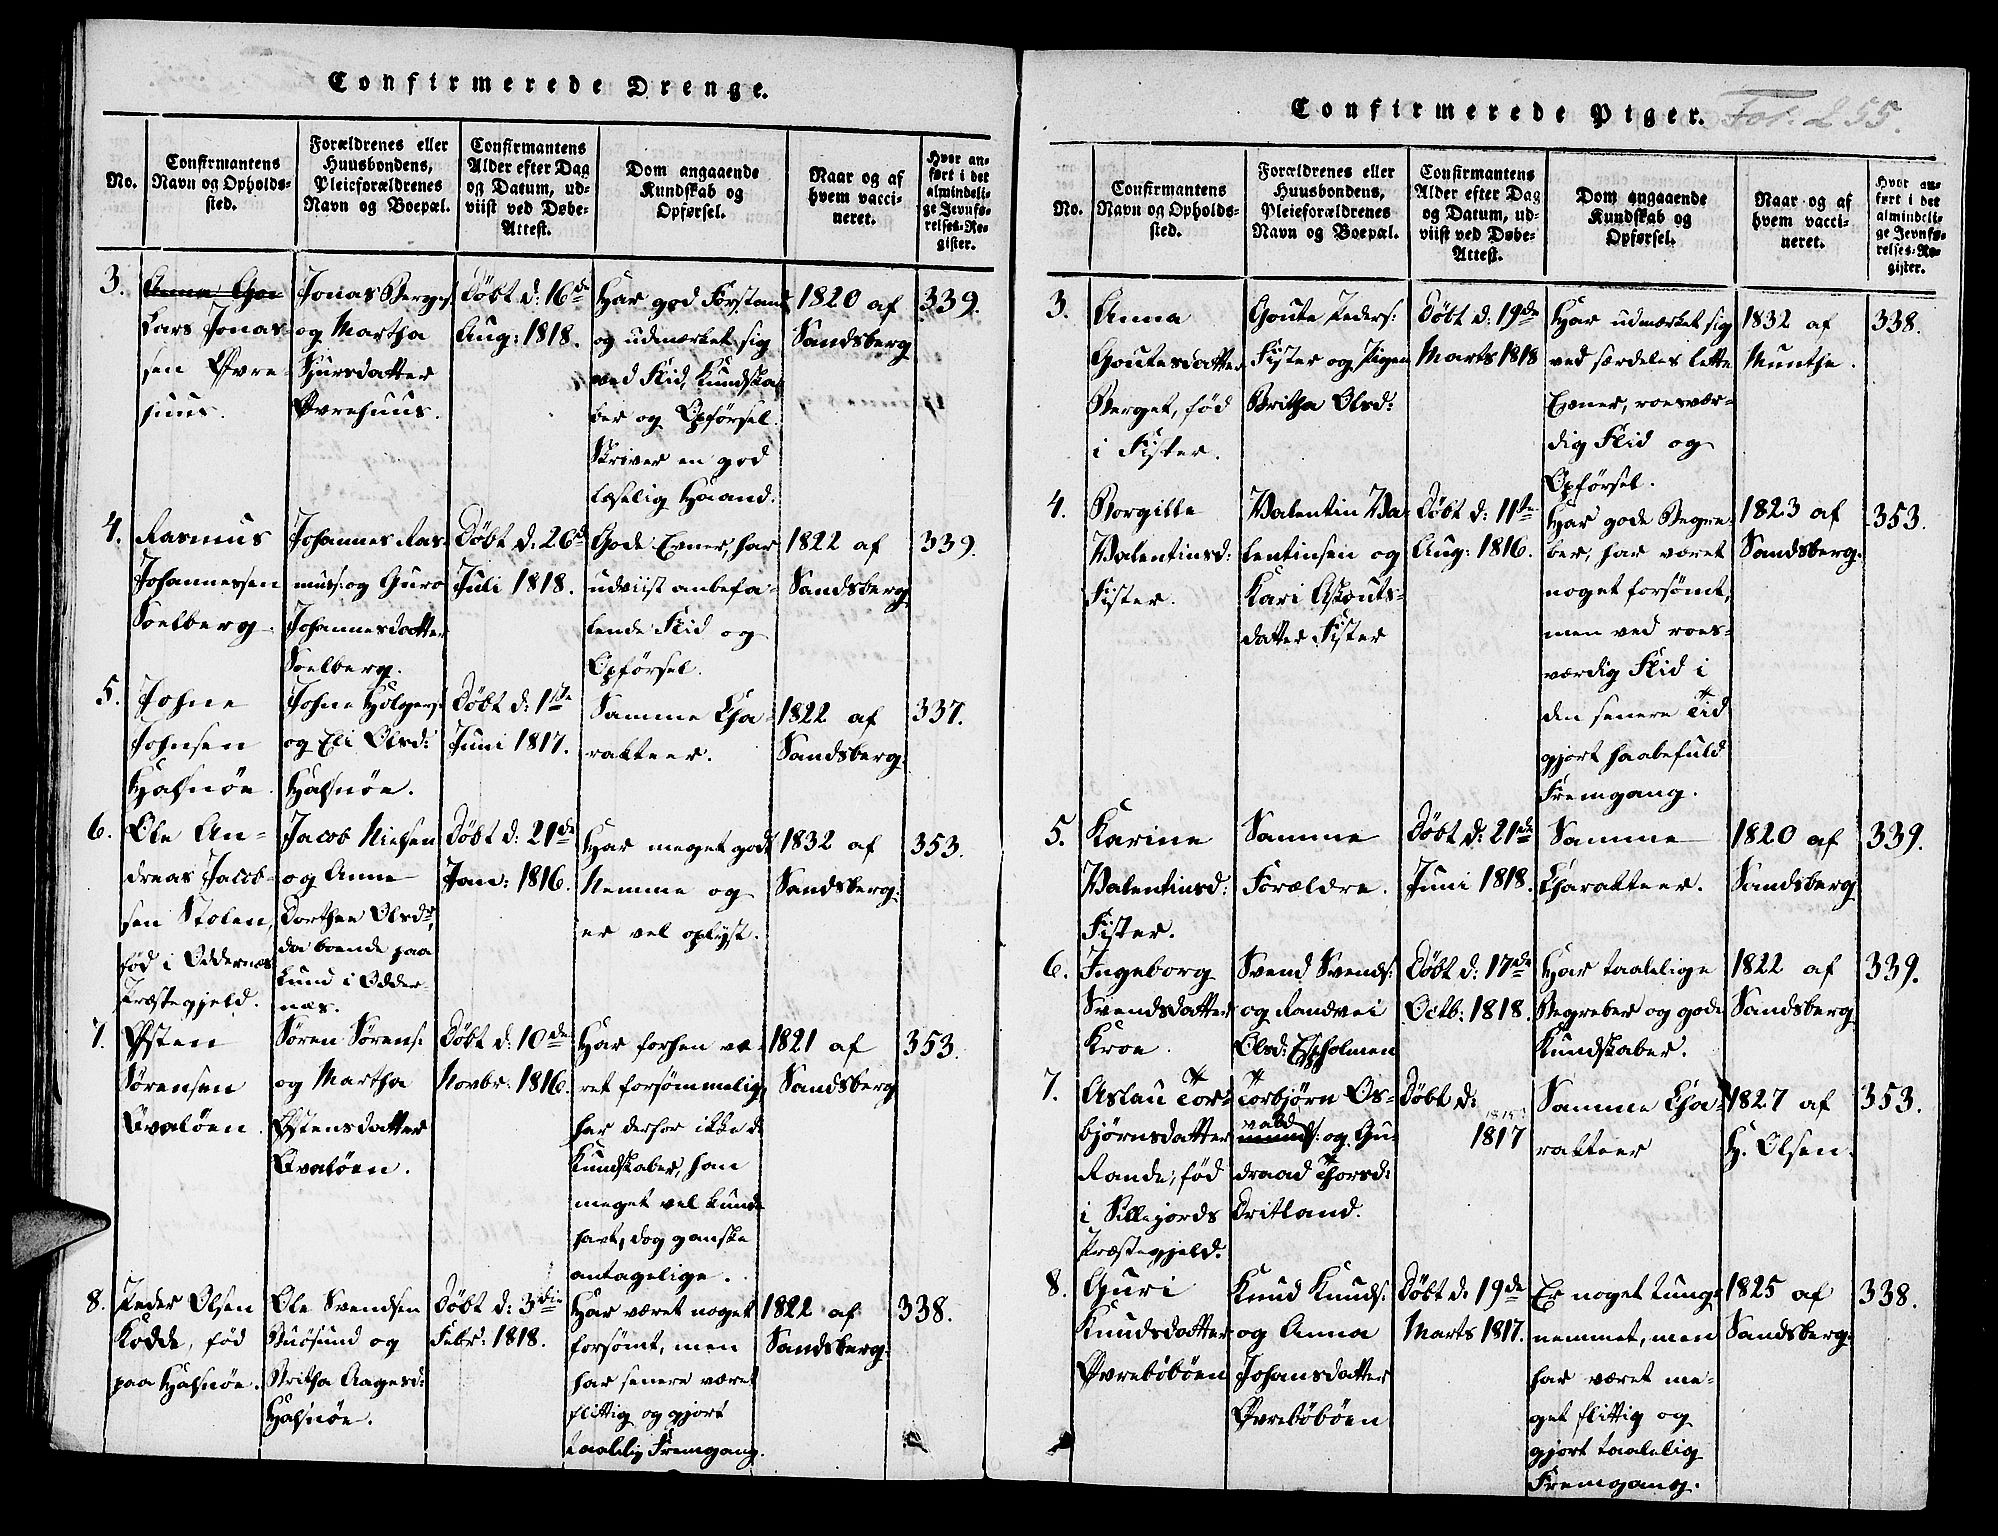 Confirmerede Drenge.
No.
Confirmantens
Navn og Opholds-
sted.
Forældrenes eller
Huusbondens,
Pleieforældrenes
Navn og Boepæl.
Confirmantens
Alder efter Dag
og Datum, ud-
viist ved Døbe-
Attest.
Dom angaaende
Kundskab og
Opførsel.
Naar og af
hvem vacci-
neret.
Hvor an-
ført i det
almindeli-
ge Jevnfø-
relses-Re-
gister.
3.
Anna Gou
Lars Jonas-
sen Øvre-
huus.
Jonas Bergers:
og Martha
Sjursdatter
Øvrehuus.
Døbt d: 16de
Aug: 1818.
Har god Forstand
og udmærket sig
ved Flid, Kundska-
ber og Opførsel.
Skriver en god
læselig Haand.
1820 af
Sandsberg
339.
4.
Rasmus
Johannessen
Soelberg
Johannes Ras-
muss: og Guro
Johannesdatter
Soelberg.
Døbt d: 26d
Juli 1818.
Gode Evner, har
udviist anbefa-
lende Flid og
Opførsel.
1822 af
Sandsberg
339.
5.
Johne
Johnsen
Halsnøe.
Johne Holgers:
og Eli Olsd:
Halsnøe.
Døbt d: 1ste
Juni 1817.
Samme Cha-
rakteer.
1822 af
Sandsberg.
337.
6.
Ole An-
dreas Jacob-
sen Stolen,
fød i Oddernæs
Præstegjeld.
Jacob Nielsen
og Anne
Dorthea Olsd:
da boende paa
Lund i Odder-
næs.
Døbt d: 21de
Jan: 1816.
Har meget godt
Nemme og
er vel oplyst.
1832 af
Sandsberg.
353.
7.
Østen
Sørensen
Qvaløen.
Søren Sørens:
og Martha
Østensdatter
Qvaløen.
Døbt d: 10de
Novbr: 1816.
Har forhen væ-
ret forsømmelig,
har derfor ikke de
Kundskaber, han
meget vel kunde
havt, dog ganske
antagelige.
1821 af
Sandsberg
353.
8.
Peder Olsen
Kodde, fød
paa Halsnøe.
Ole Svendsen
Buøsund og
Britha Aagesd:
Halsnøe.
Døbt d: 3die
Febr: 1818.
Har været noget
forsømt, men
har senere været
flittig og gjort
taalelig Fremgang.
1822 af
Sandsberg.
338.
Confirmerede Piger.
Fol. 255.
No.
Confirmantens
Navn og Opholds-
sted.
Forældrenes eller
Huusbondens,
Pleieforældrenes
Navn og Boepæl.
Confirmantens
Alder efter Dag
og Datum, ud-
viist ved Døbe-
Attest.
Dom angaaende
Kundskab og
Opførsel.
Naar og af
hvem vacci-
neret.
Hvor an-
ført i det
almindeli-
ge Jevnfø-
relses-Re-
gister.
3.
Anna
Goutesdatter
Berget, fød
i Fister.
Goute Peders:
Fister og Pigen
Britha Olsd:
Døbt d: 19de
Marts 1818
Har udmærket sig
ved særdeles lette
Evner, roesvær-
dig Flid og
Opførsel.
1832 af
Munthe.
338.
4.
Borgille
Valentinsd:
Fister.
Valentin Va-
lentinsen og
Kari Asgouts-
datter Fister
Døbt d: 11te
Aug: 1816.
Har gode Begre-
ber, har været
noget forsømt,
men ved roes-
værdig Flid i
den senere Tid
gjort haabefuld
Fremgang.
1823 af
Sandsberg.
353.
5.
Karine
Valentinsd:
Fister.
Samme
Forældre.
Døbt d: 21de
Juni 1818.
Samme
Charakteer.
1820 af
Sandsberg
339.
6.
Ingeborg
Svendsdatter
Kroe.
Svend Svends:
og Randvei
Olsd: Espholmen
Døbt d: 17de
Octb: 1818.
Har taalelige
Begreber og gode
Kundskaber.
1822 af
Sandsberg
339.
7.
Aslau Tor-
bjørnsdatter
Rande, fød
i Sillejords
Præstegjeld.
Torbjørn Os-
vald
munds: og Gu-
draad Thorsd:
Dritland.
Døbt d:
1817
Samme Cha-
rakteer
1827 af
H. Olsen.
353.
8.
Guri
Knudsdatter
Øvrebøbøen
Knud Knuds:
og Anna
Johansdatter
Øvrebøbøen
Døbt d: 19de
Marts 1817.
Er noget tung-
nemmet, men
har været me-
get flittig og
gjort taalelig
Fremgang.
1825 af
Sandsberg.
338.